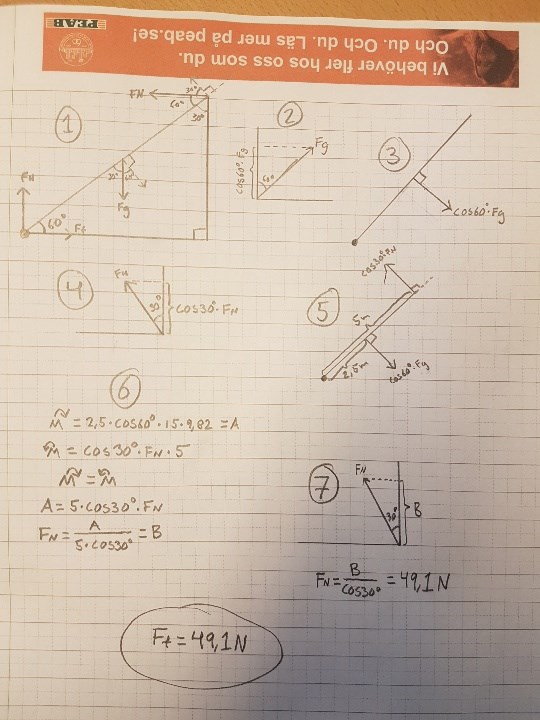 Vi behöver fler hos oss som du.
Och du. Läs mer på peab.se!
PEAB
1
FN
30°
60°
30°
FN
30°
60°
Fg
60°
Ff
2
Fg
cos60°·Fg
60°
3
cos60°·Fg
4
FN
30°
cos30°·FN
5
cos30°·FN
5m
2,5m
cos60°·Fg
6
M = 2,5·cos60°·15·9,82 = A
M = cos30°·FN·5
M = M
A = 5·cos30°·FN
FN = A / 5·cos30° = B
7
FN
30°
B
FN = B / cos30° = 49,1N
Ff = 49,1N